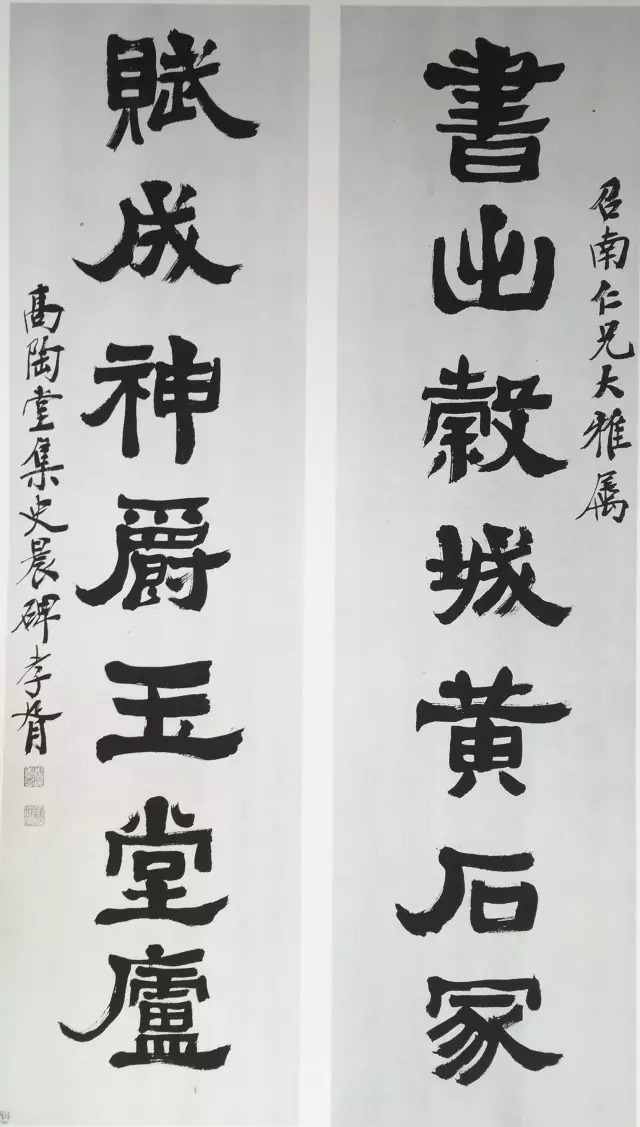 召南仁兄大雅属
書出穀城黄石冢
賦成神爵玉堂廬
髙陶堂集史晨碑孝胥